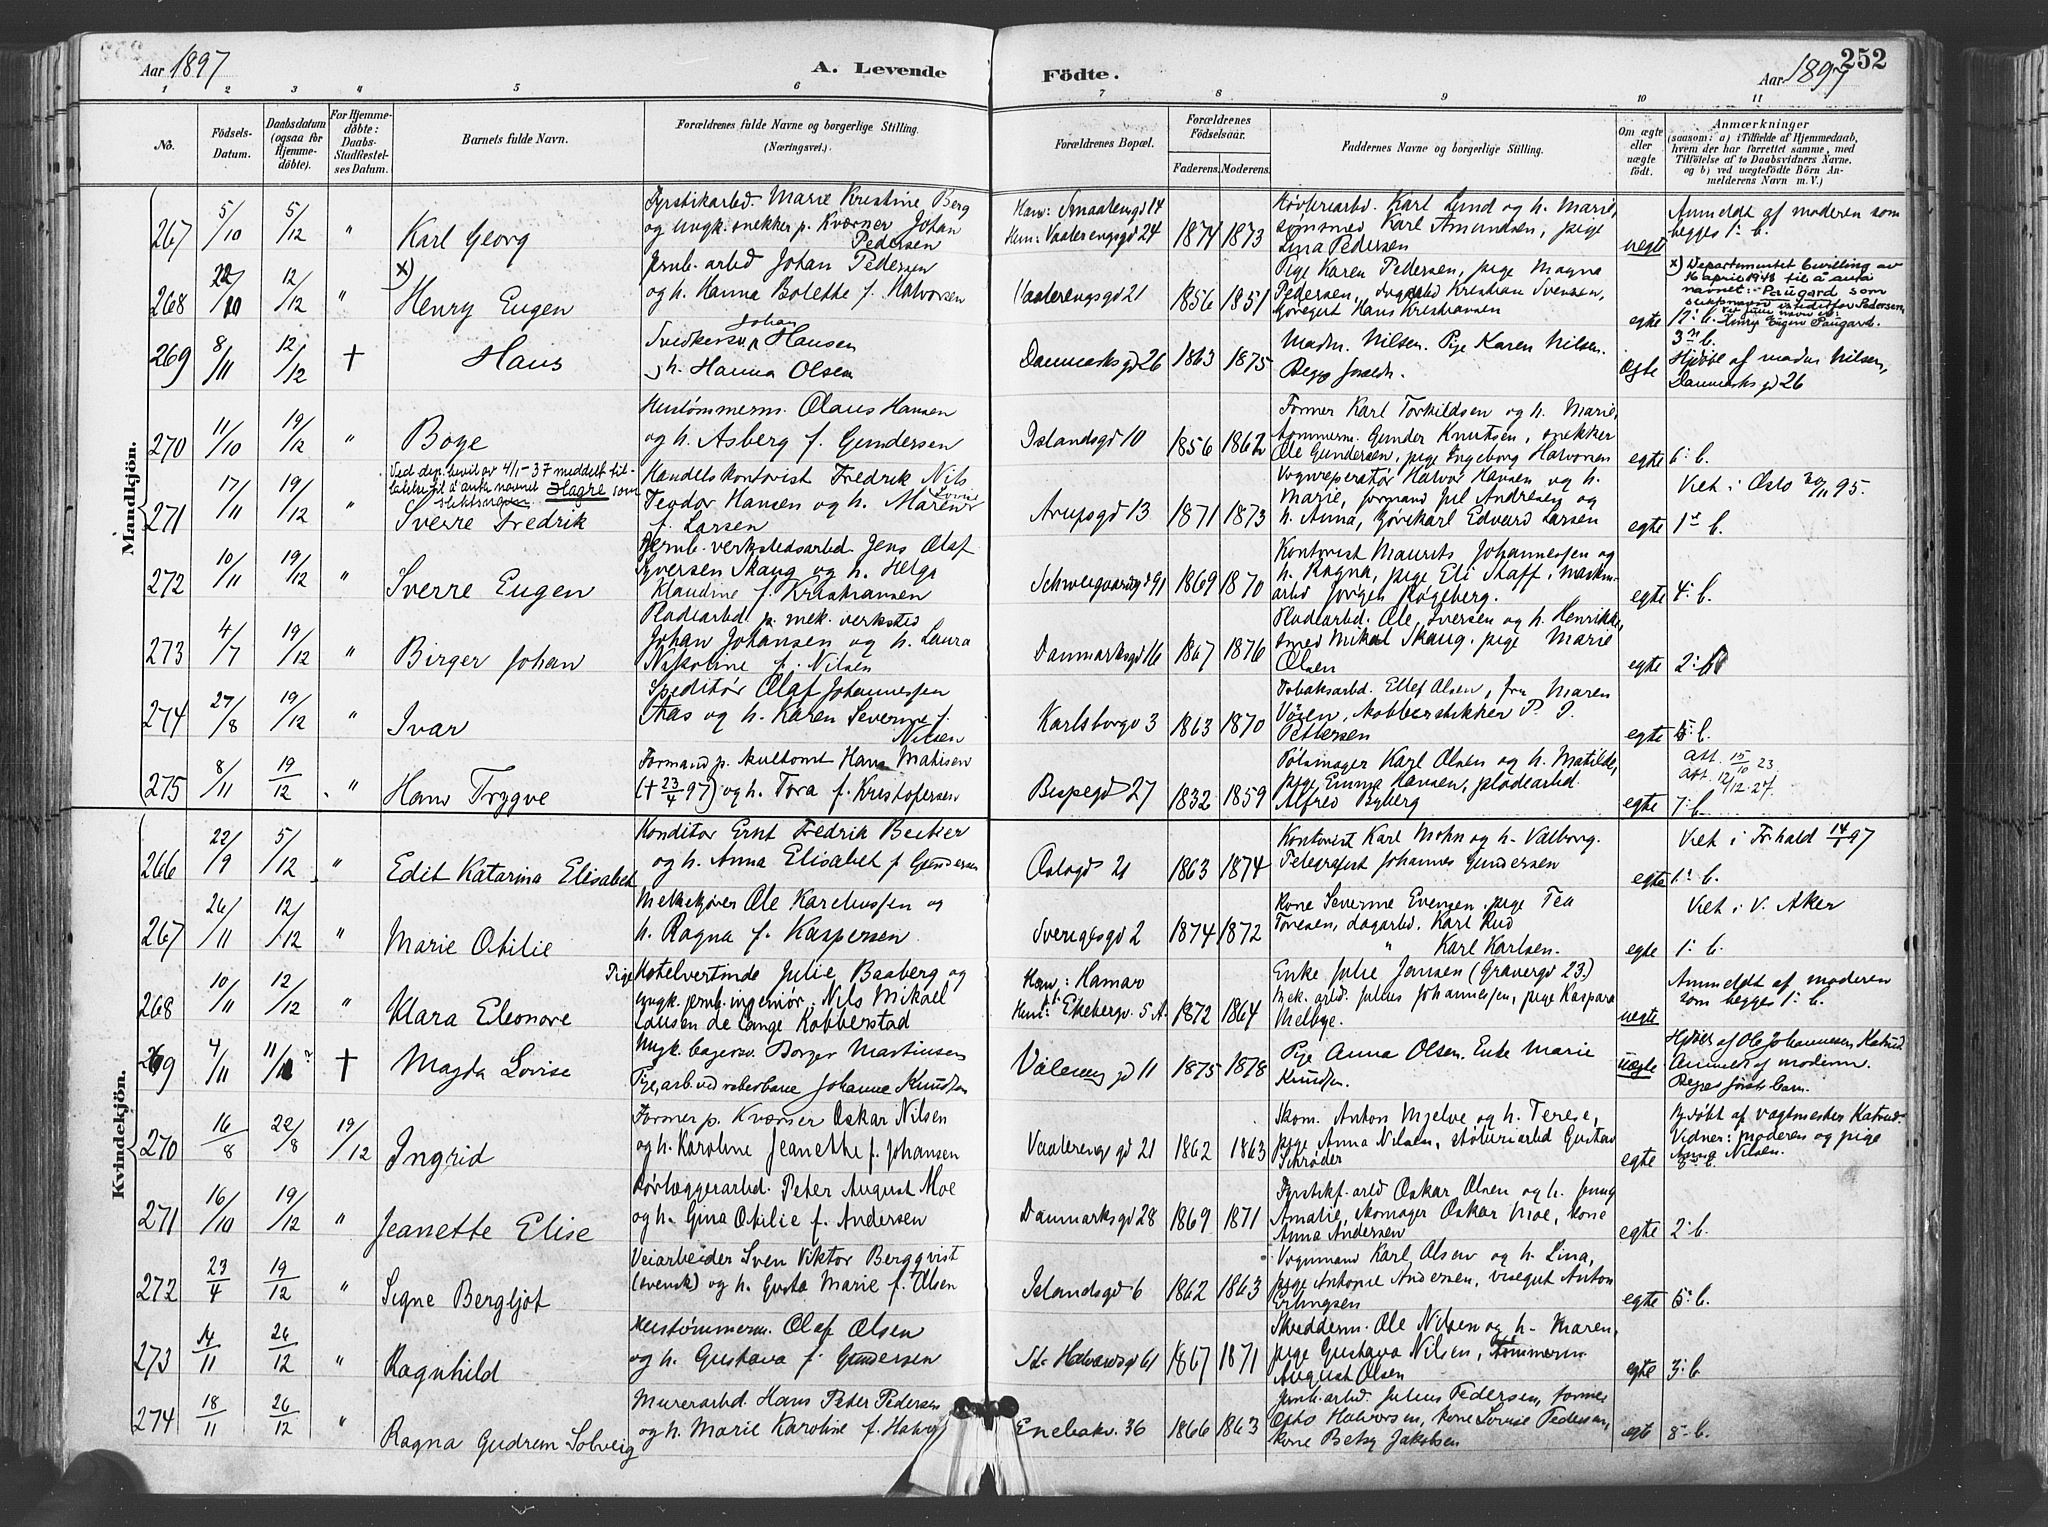 Aar 1897
A. Levende
Födte.
Aar 1897
252
1 2 3 " 5 6 7 8 9 10 11
No.
Födsels-Datum.
Daabsdatum (ogsaa för Hjemmedöbte).
For Hjemmedöbte: Daabs-Stadfæstelses Datum.
Barnets fulde Navn.
Forældrenes fulde Navne og borgerlige Stilling.
(Næringsvei.)
Forældrenes Bopæl.
Forældrenes Födselsaar.
Faderens. Moderens.
Faddernes Navne og borgerlige Stilling.
Om ægte eller uægte födt.
Anmærkninger
(saasom: a) i Tilfælde af Hjemmedaab, hvem der har forrettet samme, med Tilföielse af to Daabsvidners Navne. og b) ved uægtefödte Börn Anmelderens Navn m. V.)
Mandkjön.
267 5/10 5/12 " Karl Georg
Fyrstikarbd. Marie Kristine Berg
og ungk. snekker p. Kværner Johan
Pedersen
Han: Smaalensgd 14
Hun: Vaalerengsgd 24
1874 1873
Karl Lund og h. Marie,
Karl Amundsen, pige
Lina Pedersen
uegte
Anmeldt af moderen som
begges 1: b.
268 22/10 12/12 " x) Henry Eugen
Jernb. arbd Johan Pedersen
og h. Hanna Bolette f. Halvorsen
Vaalerengsgd 21
1856 1851
Pige Karen Pedersen, pige Magna
Pedersen, Kristian Svensen,
Hans Kristiansen
egte
x) Departementet bevilling av
16 april 1948 til å anta
navnet: Paugard som
12: b.
269 8/11 12/12 † Hans
Johan Hansen
h. Hanna Olsen
Danmarksgd 26
1863 1875
Madm. Nilsen. Pige Karen Nilsen.
Ægte
3 b.
Hjdøbt af madm Nilsen,
Danmarksgd 26
270 11/10 19/12 " Boye
Hustømmerm. Olaus Hansen
og h. Asberg f. Gundersen
Islandsgd 10
1856 1862
Former Karl Torkildsen og h. Marie,
tømmerm. Gunder Knutsen, snekker
Ole Gundersen, pige Ingeborg Halvorsen
egte 6: b.
271 17/11 19/12 "
Ved dep. bevil av 4/1-37 meddelt til-
latelse til å anta navnet Hagre som
slektsnavn
Sverre Fredrik
Handelskontorist Fredrik Nils
Teodor Hansen og h. Maren Lovise
f. Larsen
Arupsgd 13
1871 1873
Vognreperatør Halvor Hansen og h.
Marie, formand Andresen og
h. Anna, Edvard Larsen
egte
Viet i Oslo 20/11 95.
1ste b.
272 10/11 19/12 " Sverre Eugen
Jernb. verkstedsarbd. Jens Olaf
Syversen Skaug og h. Helga
Klaudine f. Kristiansen
Schweigaardsgd 91
1869 1870
Kontorist Maurits Johannessen og
h. Ragna, pige Eli Staff, maskin-
arbd Jørgen Rogeberg.
egte 4: b.
273 4/7 19/12 " Birger Johan
Pladearbd p. mek. verksted
Johan Johansen og h. Laura
Nikoline f. Nilsen
Danmarksgd 16
1867 1876
Pladearbd. Ole Iversen og h. Henrikke,
Mikal Skaug, pige Marie
Olsen
egte 2: b
274 27/8 19/12 " Ivar
Speditør Olaf Johannessen
Aas og h. Karen Severine f.
Nilsen
Karlsborgv 3
1863 1870
Tobaksarbd. Ellef Olsen, fru Maren
Kobberstikker P. J.
Pettersen
egte 5: b.
275 8/11 19/12 " Hans Trygve
Formand p. Hans Mathisen
(† 23/4 97) og h. Tora f. Kristofersen
Bispegd 27
1832 1859
Pølsmager Karl Olsen og h. Matilde,
pige Emma Hansen, pladearbd.
Alfred Byberg
egte
att. 15/10 23.
att. 12/12. 27.
7: b.
Kvindekjön.
266 22/9 5/12 " Edit Katarina Elisabet
Konditor Ernt Fredrik Becker
og h. Anna Elisabet f. Gundersen
Oslogd 21
1863 1874
Kontorist Karl Mohn og h. Valborg.
Telegrafist Johannes Gundersen
egte
Viet i Fr.hald 14/1 97
1: b.
267 26/11 12/12 " Marie Otilie
Melkekjører Ole Kareliussen og
h. Ragna f. Kaspersen
Sverigesgd 2
1874 1872
Kone Severine Evensen, pige Tea
Toresen, dagarbd. Karl Rud
" Karl Karlsen.
egte
Viet i V. Aker
1: b.
268 10/11 12/12 " Klara Eleonore
Pige Hotelvertinde Julie Baaberg og
ungk. jernb. ingeniør. Nils Mikael
Lousen de Lange Kobberstad
Han: Hamar
Hun: Ekebergv. 5 A.
1872 1864
Enke Julie Jansen (Gravergd 23.)
Mek. arbd. Julius Johannessen, pige Kaspara
Melbye.
uegte
Anmeldt af moderen
som begges 1: b.
269 4/11 11/11 † Magda Lovise
Ungk. lagerarb. Borger Martinsen
Pige, arb. ved reberbane Johanne Knudsen
Vålerengd 11
1875 1878
Pige Anna Olsen. Enke Marie
Knudsen.
uægte
Hjdøbt af Ole Johannesen Katrud
Anmeldt af moderen.
Begges første barn.
270 16/8 22/8 19/12 Ingrid
Former p. Kværner Oskar Nilsen
og h. Karoline Jeanette f. Johansen
Vaalerengsgd 21
1862 1863
Skom. Anton Mjelve og h. Terese,
pige Anna Nilsen, støberiarbd Gustav
Schrøder
egte
Hjdøbt af vagtmester Katrud.
Vidner: moderen og pige
Anna Nilsen.
8: b.
271 16/10 19/12 " Jeanette Elise
Rørlæggerarbd. Peter August Moe
og h. Gina Otilie f. Andersen
Danmarksgd 28
1869 1871
Fyrstikf. arbd Oskar Olsen og h. Jenny
Amalie, skomager Oskar Moe, kone
Anna Andersen
egte 2: b.
272 23/4 19/12 " Signe Bergljot
Veiarbeider Sven Viktor Bergqvist
(svensk) og h. Gusta Marie f. Olsen
Islandsgd 6
1862 1863
Vognmand Karl Olsen og h. Lina,
pige Antonie Andersen, visegut Anton
Erlingsen
egte 5: b.
273 14/11 26/12 " Ragnhild
Hustømmerm. Olaf Olsen
og h. Gustava f. Gundersen
St. Halvardsgd 61
1867 1871
Skedderm. Ole Nilsen og h. Maren,
pige Gustava Nilsen, tømmerm.
August Olsen
egte 3: b
274 18/11 26/12 " Ragna Gudrun Solveig
Murerarbd. Hans Peter Pedersen
og h. Marie Karoline f. Halvors
Enebakv. 36
1866 1863
Jernb. arbd. Julius Pedersen, former
Otto Halvorsen, kone Lovise Pedersen,
kone Betsy Jakobsen
egte 8: b.